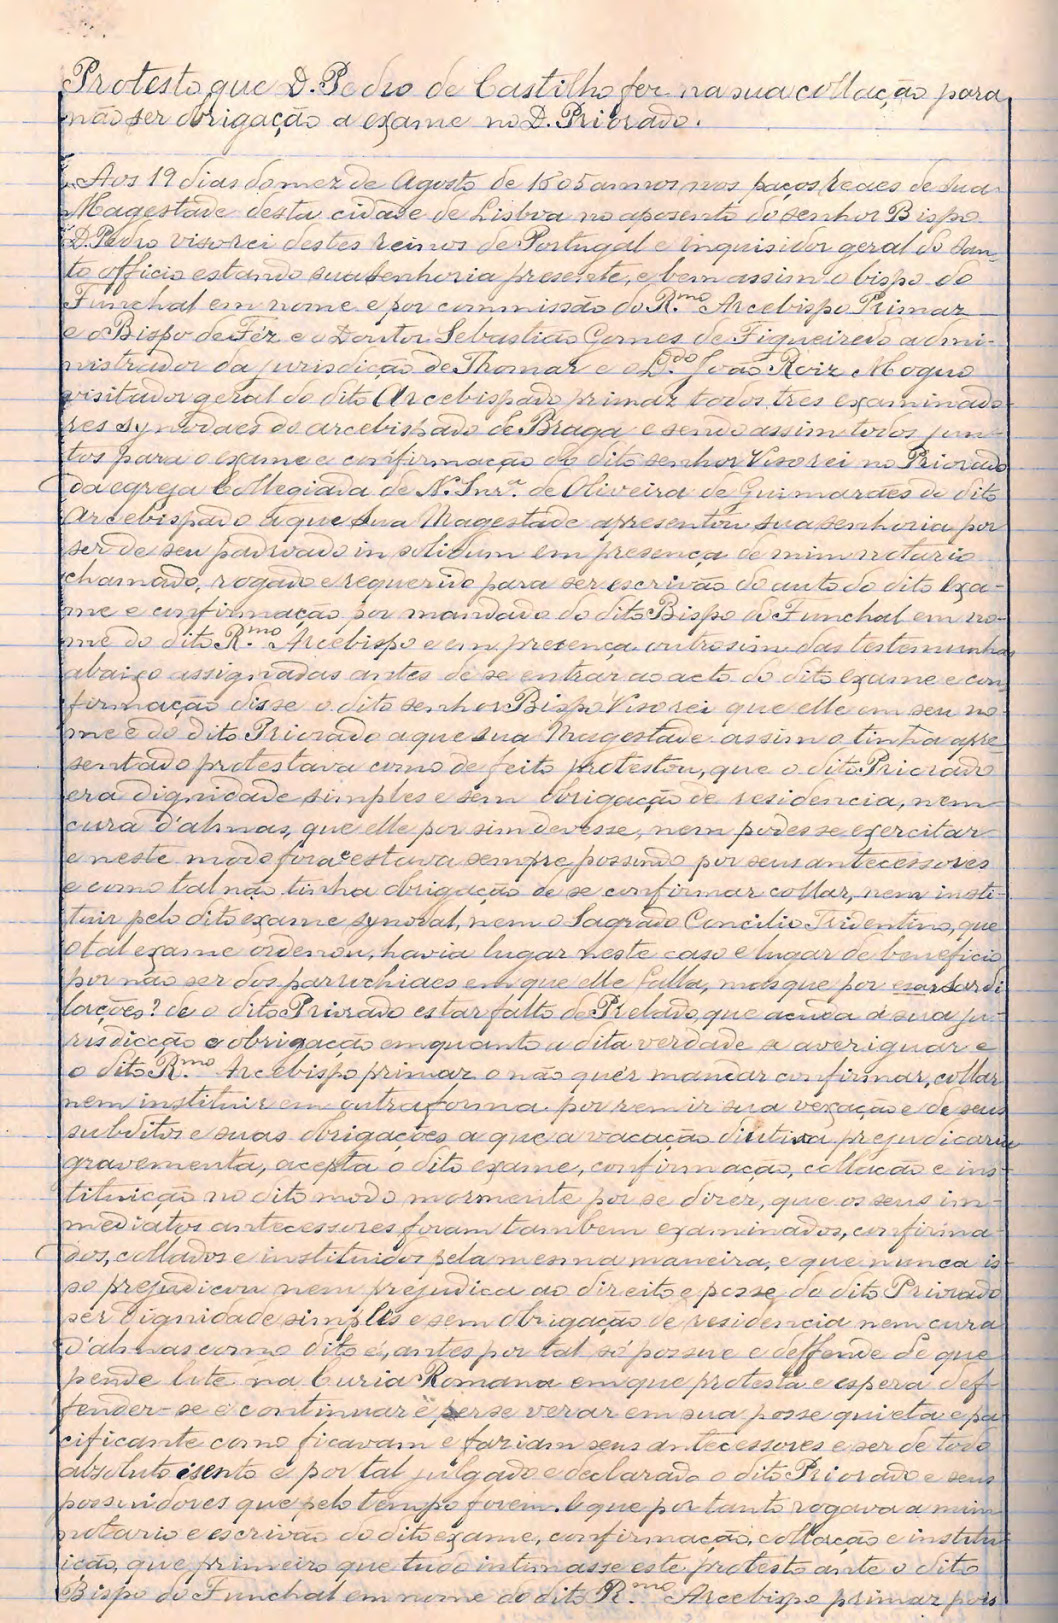 Protesto que D. Pedro de Castilho fez na sua collação para
não ser obrigação a exame no D. Priorado.
Aos 19 dias do mez de Agosto de 1605 annos nos paços reaes de sua
Magestade desta cidade de Lisboa no aposento do senhor Bispo
D. Pedro visorei destes reinos de Portugal e inquisidor geral do San-
to officio estando sua senhoria presente, e bem assim o bispo do
Funchal em nome e por commissão do R.mo Arcebispo Primaz
e o Bispo de Féz e o Doutor Sebastião Gomes de Figueiredo admi-
nistrador da jurisdicção de Thomar e o D.do João Roiz Moquo
visitador geral do dito Arcebispado primaz todos tres examinado-
res synodaes do arcebispado de Braga e sendo assim todos jun-
tos para o exame e confirmação do dito senhor Visorei no Priorado
da egreja Collegiada de N. Snr.a de Oliveira de Guimarães do dito
Arcebispado a que sua Magestade apresentou sua senhoria por
ser de seu padroado in solidum em presença de mim notario
chamado, rogado e requerido para ser escrivão do auto do dito exa-
me e confirmação por mandado do dito Bispo do Funchal em no-
me do dito R.mo Arcebispo e em presença outrosim das testemunhas
abaixo assignadas antes de se entrar ao acto do dito exame e con
firmação disse o dito senhor Bispo Visorei que elle em seu no-
me e do dito Priorado a que sua Magestade assim o tinha apre
sentado protestava como de feito protestou, que o dito Priorado
era dignidade simples e sem obrigação de residencia, nem
cura d'almas, que elle por sim devesse, nem podesse exercitar
e neste mode fora e estava sempre possuido por seus antecessores
e como tal não tinha obrigação de se confirmar collar, nem insti-
tuir pelo dito exame synodal, nem o Sagrado Concilio Tridentino, que
o tal exame ordenou, havia lugar neste caso e lugar de beneficio
por não ser dos parrochiaes em que elle falla, mas que por
lações? de o dito Priorado estar falto de Prelado, que acuda a sua ju-
risdicção e obrigação emquanto a dita verdade se averiguar e
o dito R.mo Arcebispo primaz o não quér mandar confirmar, collar
nem instituir em outra forma por remir sua vexação e de seus
subditos e suas obrigações a que a vacação diutiva prejudicaria
gravementa, acepta o dito exame, confirmação, collacão e ins-
tituicção no dito modo mormente por se dizer, que os seus im-
mediatos antecessores foram tambem examinados, confirma-
dos, collados e instituidos pela mesma maneira, e que nunca is-
so prejudicou nem prejudica ao direito e posse do dito Priorado
ser dignidade simples e sem obrigação de residencia nem cura
d'almas como dito é, antes por tal só possue e deffende de que
pende lite na Curia Romana em que protesta e espera def-
fender-se e continuar e perseverar em sua posse quieta e pa
cificante como ficavam e faziam seus antecessores e ser de todo
absoluto isento e por tal julgado e declarado o dito Priorado e seus
possuidores que pelo tempo forem. E que por tanto rogava a mim
notario e escrivão do dito exame, confirmação, collação e institu
ição, que primeiro que tudo intimasse este protesto ante o dito
Bispo do Funchal em nome do dito R.mo Arcebispo primaz pois